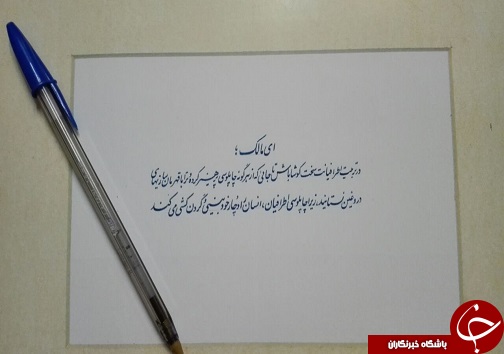 ای مالک ؛
در تربیت اطرافیانت سخت کوشا باش تا جایی که از هرگونه چاپلوسی پرهیز کرده و ترا با قهرمان سازیهای
دروغین نستایند. زیرا چاپلوسی اطرافیان، انسان را دچار خود بینی و گردن کشی می کند
باشگاه خبرنگاران